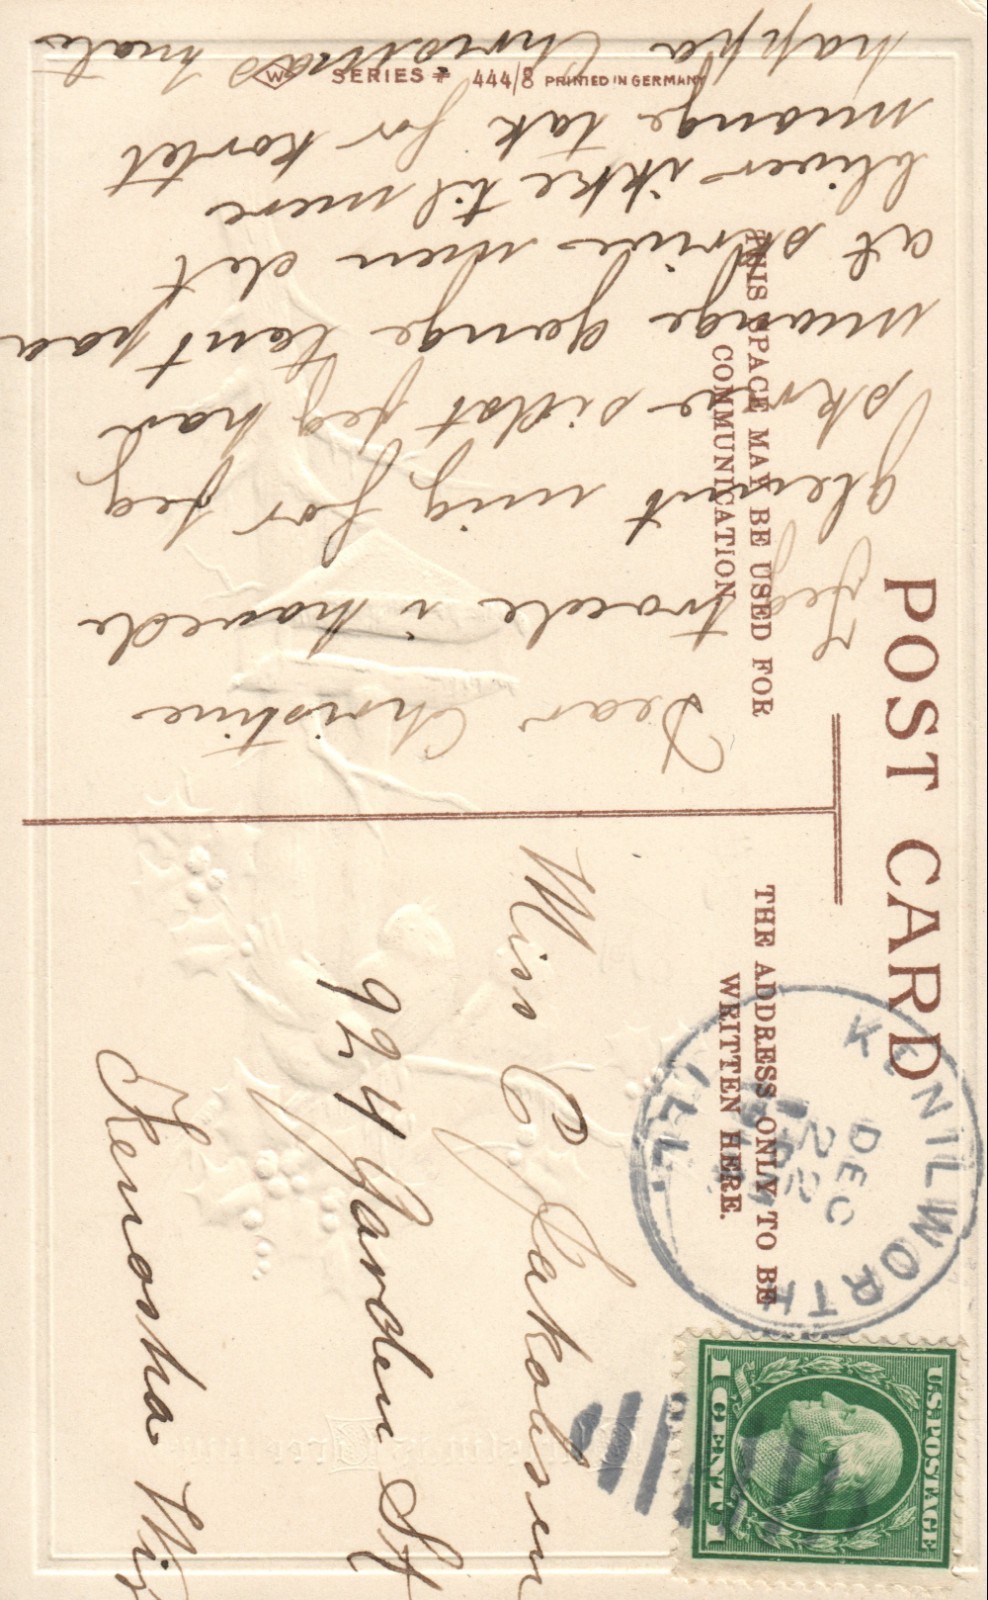 POST CARD
THIS SPACE MAY BE USED FOR
COMMUNICATION
THE ADDRESS ONLY TO BE
WRITTEN HERE.
SERIES # 444/8 PRINTED IN GERMANY
Dear Christine
Jeg troede i havde
glemt mig for jeg
skrve sidst jeg har
mange gange tent paa
at skrive men det
bliver ikke til mere
mange tak for kortet
happa Christmas
Miss C Jakobsen
924 Garden St
Kenosha Wis
KENILWORTH
DEC
ILL.
U.S. POSTAGE
1 CENT 1